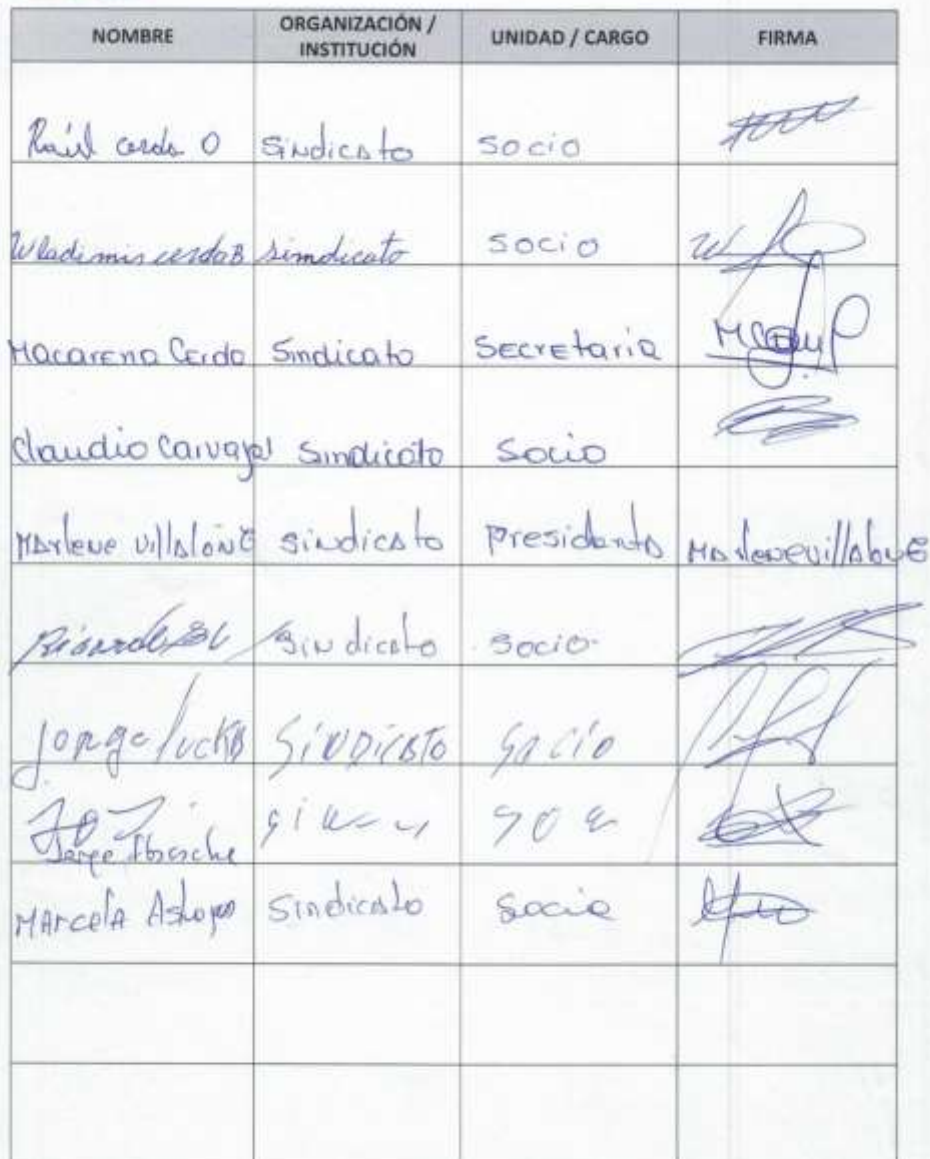 NOMBRE ORGANIZACIÓN / INSTITUCIÓN UNIDAD / CARGO FIRMA
Raúl cerda O Sindicato socio
Wladimir cerda B simdicato socio
Macarena Cerda Sindicato Secretaria
Claudio Carvajal Sindicato Socio
Marlene villalone sindicato presidenta Marlenevillalone
sindicato socio
Jorge SINDICATO socio
Jorge
Marcela Sindicato Socia